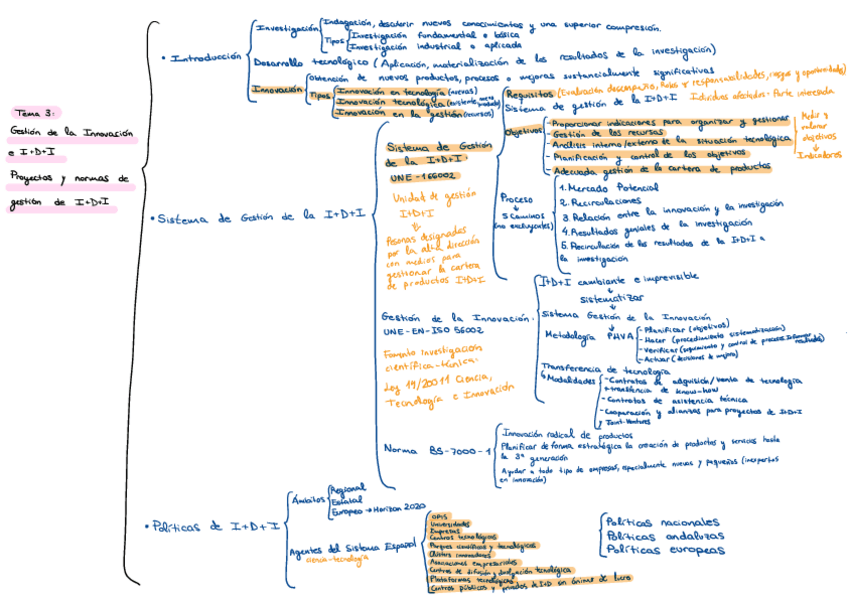 Tema 3:
Gestión de la Innovación
e I+D+I
Proyectos y normas de
gestión de I+D+I
• Introducción
Investigación
Indagación, descubrir nuevos conocimientos y una superior compresión.
Tipos
Investigación fundamental o básica
Investigación industrial o aplicada
Desarrollo tecnológico (Aplicación, materialización de los resultados de la investigación)
Innovación
Obtención de nuevos productos, procesos o mejoras sustancialmente significativas
Tipos
Innovación en tecnología (nuevas)
Innovación tecnológica (existente
Innovación en la gestión (recursos)
• Sistema de Gestión de la I+D+I
Sistema de Gestión
de la I+D+I.
UNE-166002
Unidad de gestión
I+D+I
Pesonas designadas
por la alta dirección
con medios para
gestionar la cartera
de productos I+D+I
Requisitos (Evaluación desempeño, Roles y responsabilidades, riesgos y oportunidades)
Sistema de gestión de la I+D+I
Parte interesada
Objetivos
- Proporcionar indicaciones para organizar y gestionar
- Gestión de los recursos
- Análisis interno/externo de la situación tecnológica
- Planificación y control de los objetivos
- Adecuada gestión de la cartera de productos
Medir y
valorar
objetivos
Indicadores
Proceso
5 Caminos
(no excluyentes)
1. Mercado Potencial
2. Recirculaciones
3. Relación entre la innovación y la investigación
4. Resultados geniales de la investigación
5. Recirculación de los resultados de la I+D+I a
la investigación
Gestión de la Innovación.
UNE-EN-ISO 56002
Fomento investigación
científica-técnica.
Ley 14/20011 Ciencia,
Tecnología e Innovación
I+D+I cambiante e imprevisible
Sistematizar
Sistema Gestión de la Innovación
Metodología PHVA
- Planificar (objetivos)
- Hacer (procedimiento sistematización)
- Verificar (seguimiento y control de procesos
- Actuar (decisiones de mejora)
Transferencia de tecnología
Modalidades
- Contratos de adquisición/venta de tecnología
+ transferencia de know-how
- Contratos de asistencia técnica
- Cooperación y alianzas para proyectos de I+D+I
y Joint-Ventures
Norma BS-7000-1
Innovación radical de productos
Planificar de forma estratégica la creación de productos y servicios hasta
la 3ª generación
Ayudar a todo tipo de empresas, especialmente nuevas y pequeñas (inexpertas
en innovación)
• Políticas de I+D+I
Ámbitos
Regional
Estatal
Europeo → Horizon 2020
Agentes del Sistema Español
ciencia-tecnología
OPIS
Universidades
Empresas
Centros tecnológicos
Parques científicos y tecnológicos
Clústers innovadores
Asociaciones empresariales
Centros de difusión y divulgación tecnológica
Plataformas tecnológicas
Centros públicos y privados de I+D sin ánimo de lucro
Políticas nacionales
Políticas andaluzas
Políticas europeas